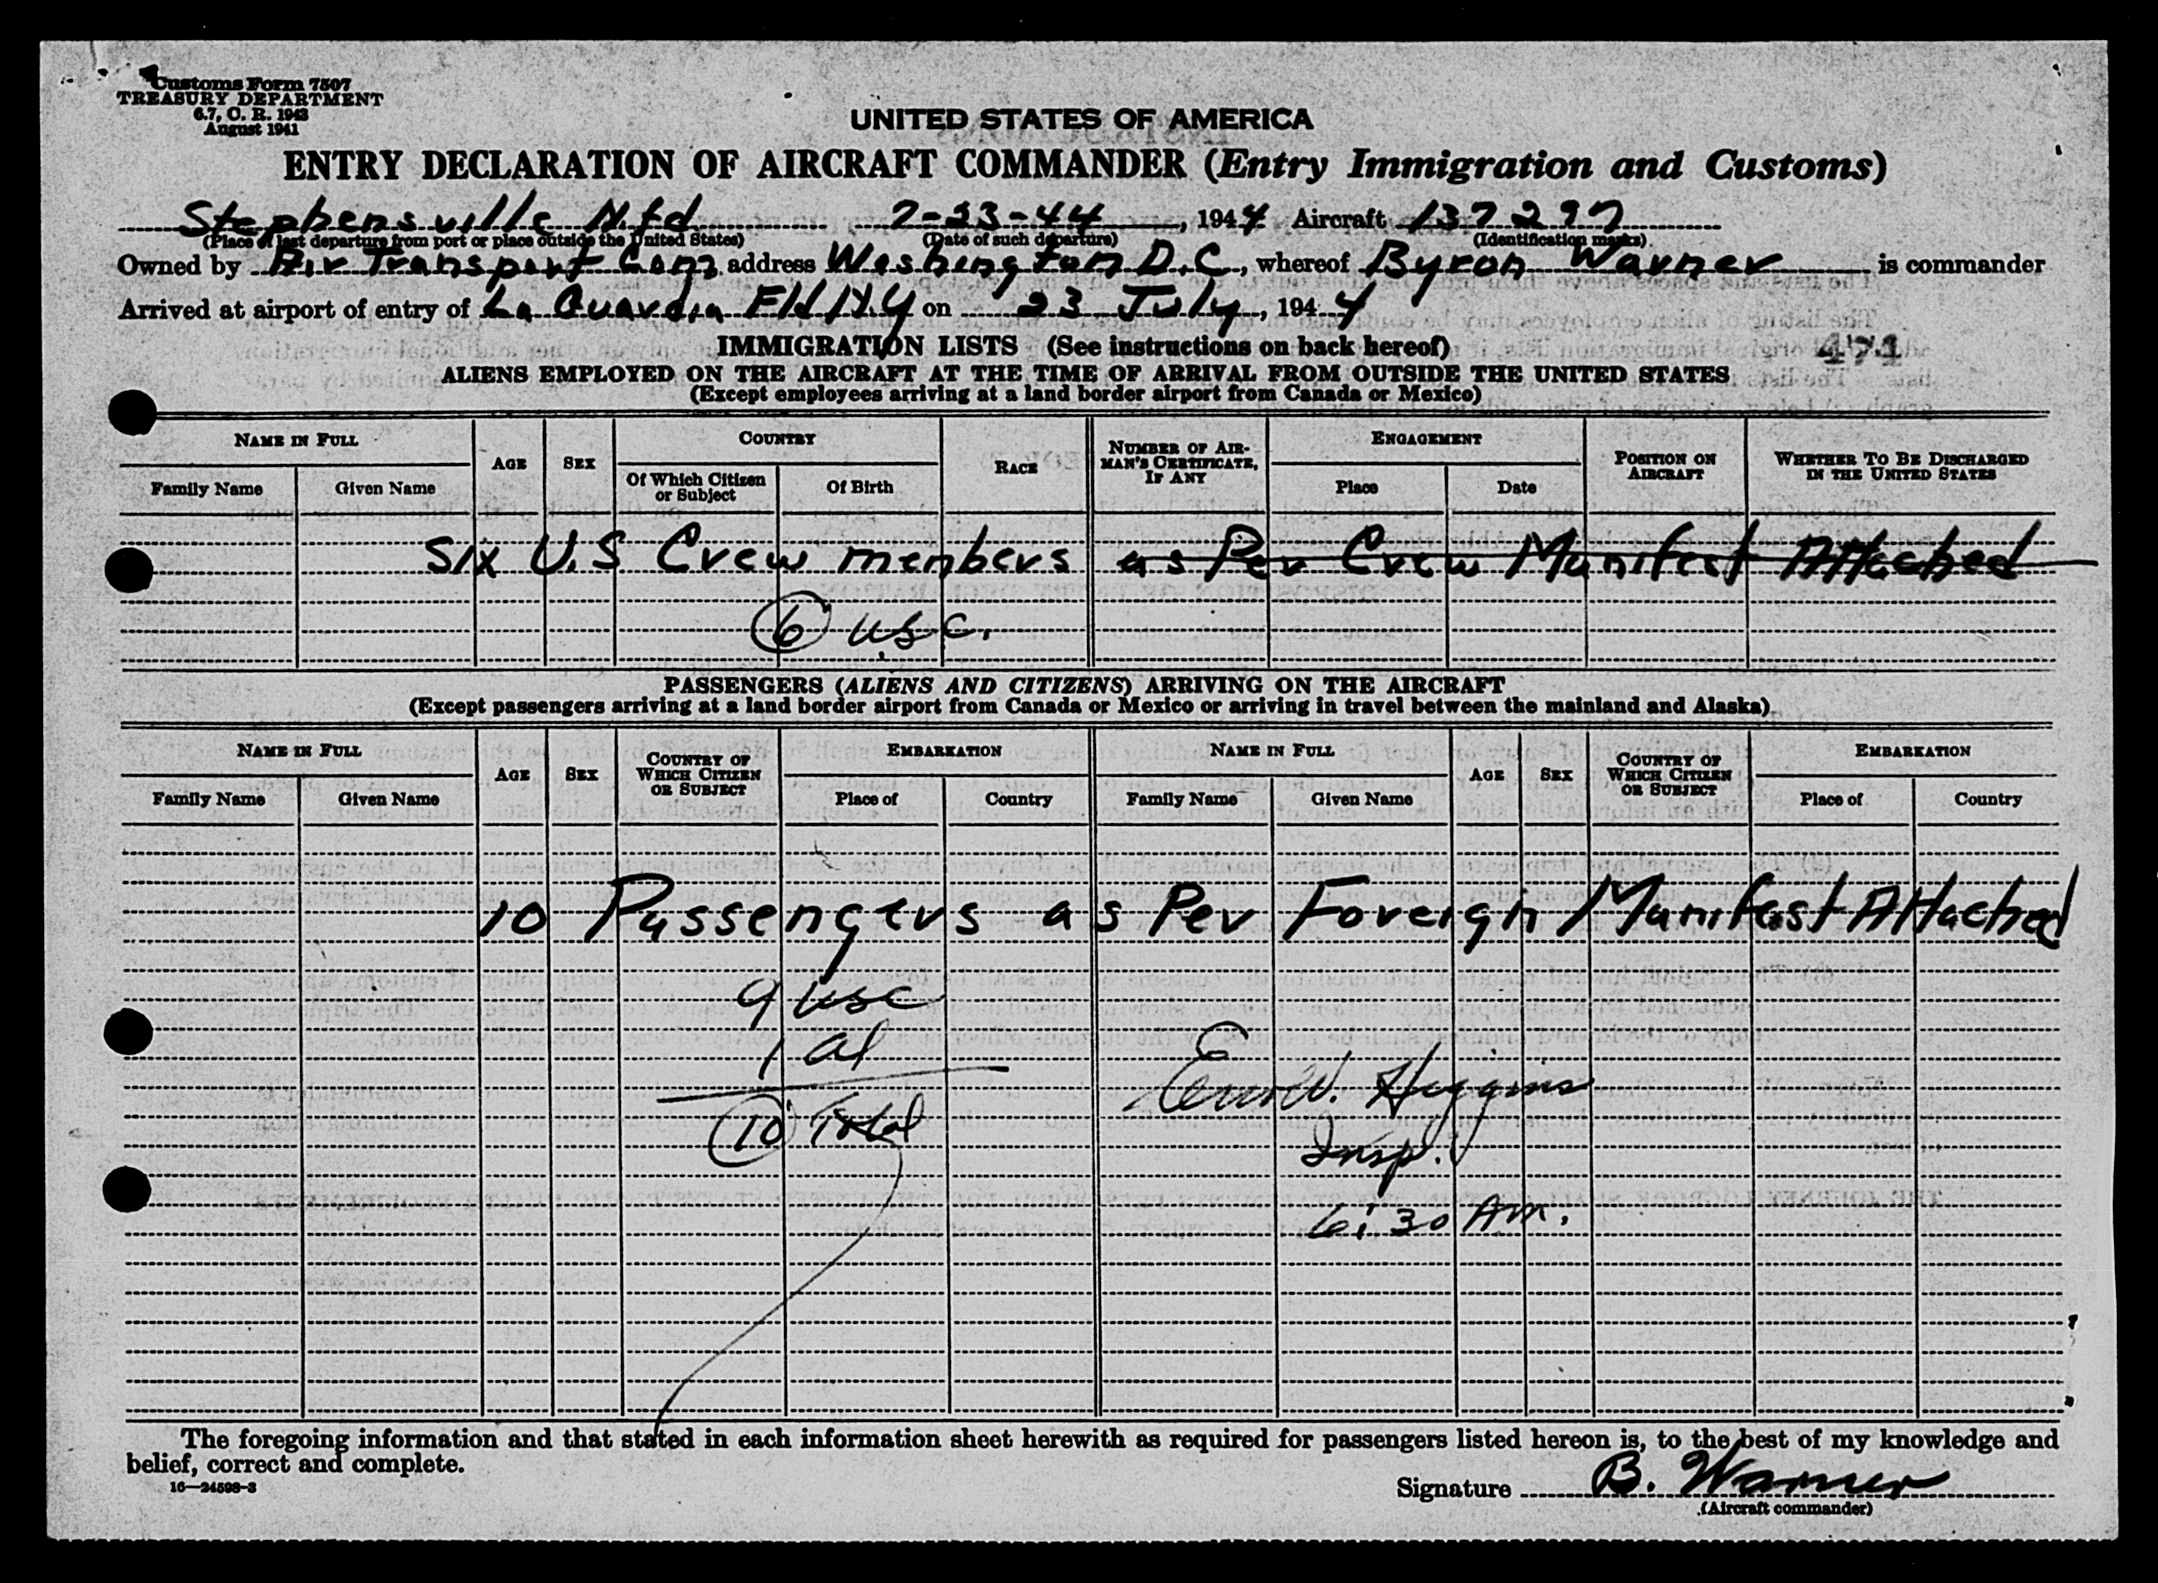 Customs Form 7507
TREASURY DEPARTMENT
6.7, C. R. 1943
August 1941
UNITED STATES OF AMERICA
ENTRY DECLARATION OF AIRCRAFT COMMANDER (Entry Immigration and Customs)
Stephensville Nfd 7-23-44, 1944 Aircraft 137297
(Place of last departure from port or place outside the United States) (Date of such departure) (Identification marks)
Owned by Air Transport Com. address Washington D.C., whereof Byron Warner is commander
Arrived at airport of entry of La Guardia Fld N.Y on 23 July, 1944
IMMIGRATION LISTS (See instructions on back hereof)
471
ALIENS EMPLOYED ON THE AIRCRAFT AT THE TIME OF ARRIVAL FROM OUTSIDE THE UNITED STATES
(Except employees arriving at a land border airport from Canada or Mexico)
NAME IN FULL AGE SEX COUNTRY RACE NUMBER OF AIRMAN'S CERTIFICATE, IF ANY ENGAGEMENT POSITION ON AIRCRAFT WHETHER TO BE DISCHARGED IN THE UNITED STATES
Family Name Given Name Of Which Citizen or Subject Of Birth Place Date
Six U.S Crew members as Per Crew Manifest Attached
6 USC.
PASSENGERS (ALIENS AND CITIZENS) ARRIVING ON THE AIRCRAFT
(Except passengers arriving at a land border airport from Canada or Mexico or arriving in travel between the mainland and Alaska)
NAME IN FULL AGE SEX COUNTRY OF WHICH CITIZEN OR SUBJECT EMBARKATION NAME IN FULL AGE SEX COUNTRY OF WHICH CITIZEN OR SUBJECT EMBARKATION
Family Name Given Name Place of Country Family Name Given Name Place of Country
10 Passengers as Per Foreign Manifest Attached
9 USC
1 al
10 Total
W. Higgins
Insp.
6:30 Am.
The foregoing information and that stated in each information sheet herewith as required for passengers listed hereon is, to the best of my knowledge and
belief, correct and complete.
16—24598-3
Signature B. Warner
(Aircraft commander)